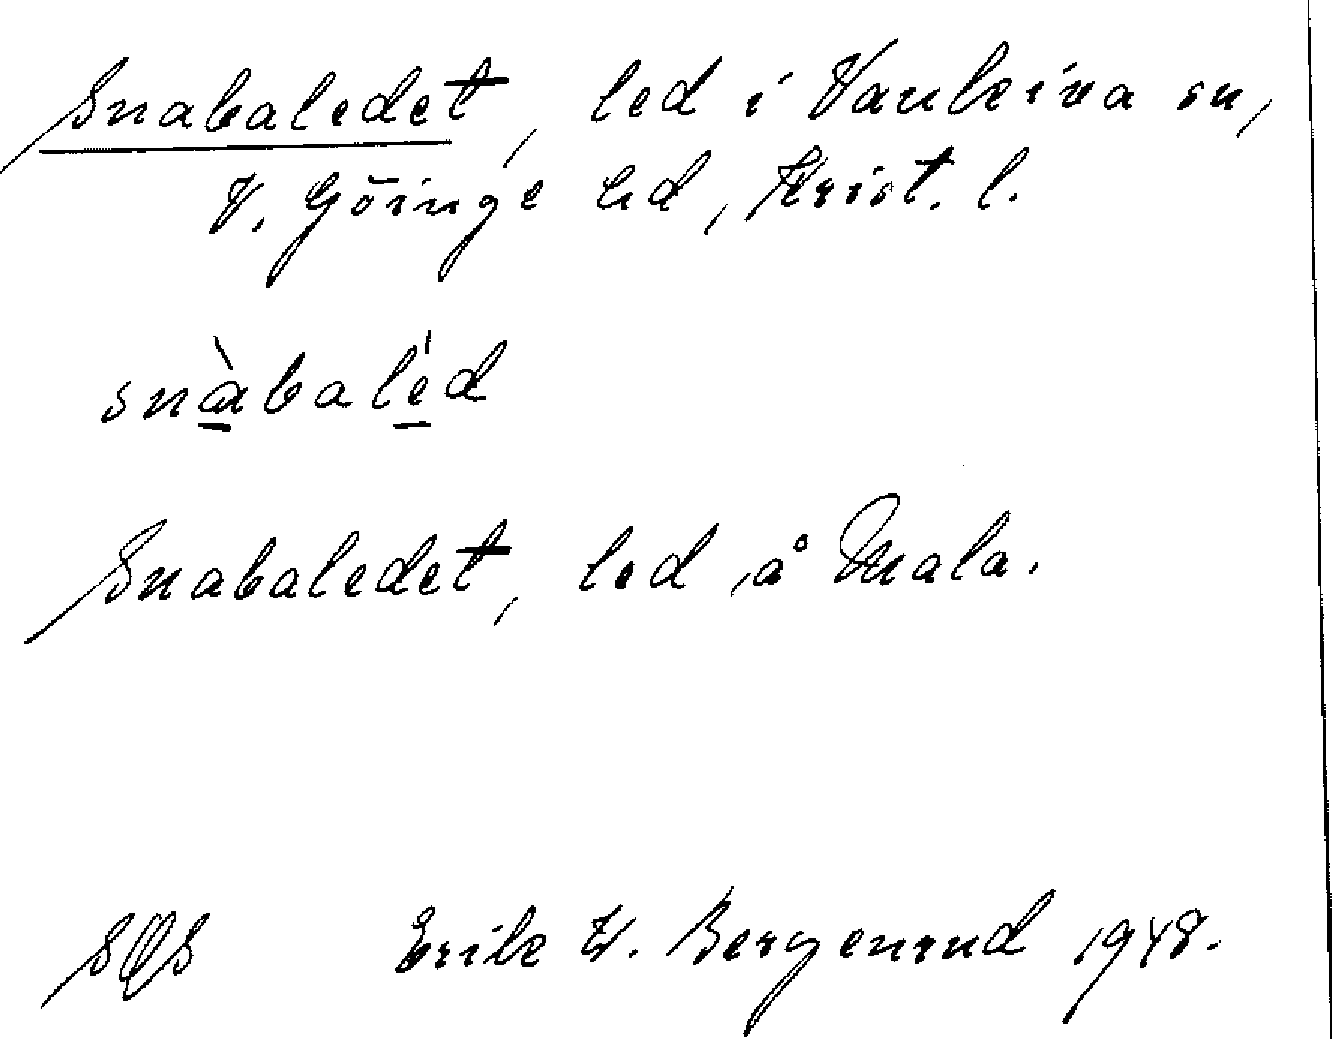 Snabaledet, led i Vankiva sn,
V. Göinge hd, Krist. l.
snàbaléd
Snabaledet, led å Mala.
SOS Erik W. Bergenrud 1948.